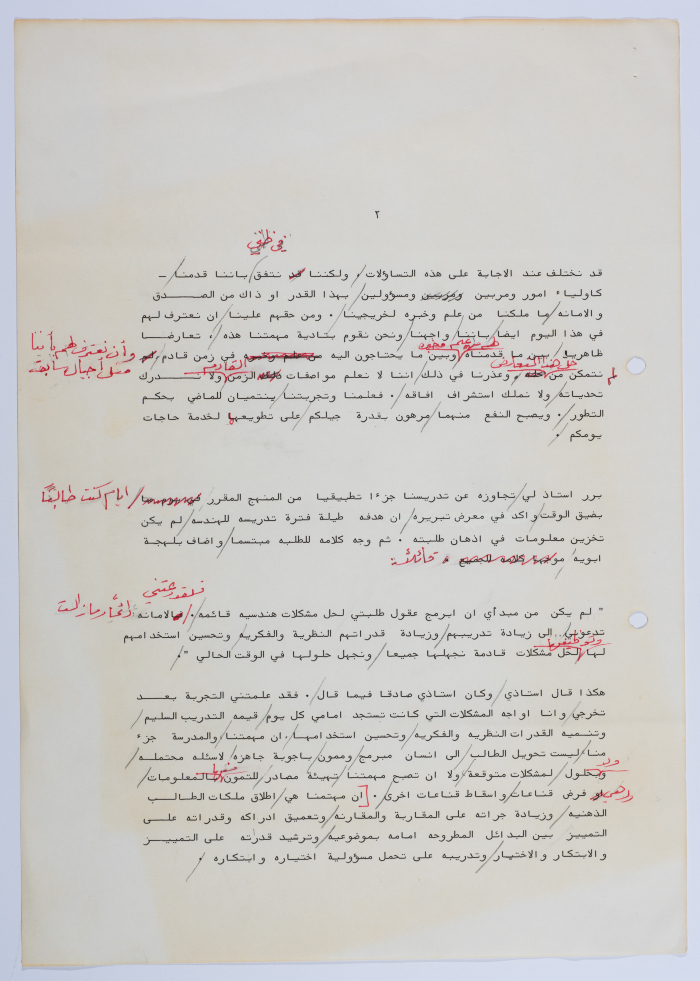 ٢
في ظني
قد نختلف عند الاجابة على هذه التساؤلات . ولكننا قد نتفق باننا قدمنا –
كاولياء امور ومربين ومسؤولين بهذا القدر او ذاك من الصدق
و الامانه ما ملكنا من علم وخبره لخريجينا . ومن حقهم علينا ان نعترف لهم
في هذا اليوم ايضا باننا واجهنا ونحن نقوم بتادية مهمتنا هذه . تعارضا
وأن نعترف لهم بأننا
ظاهريا بين ما قدمناه وبين ما يحتاجون اليه من علم في زمن قادم لم
مثل أجيال سابقة
حل هذا التعارض
القادم
لم
نتمكن من حله . وعذرنا في ذلك اننا لا نعلم مواصفات ذلك الزمن ولا ندرك
تحدياته ولا نملك استشراف افاقه . فعلمنا وتجربتنا ينتميان للماضي بحكم
التطور . ويصبح النفع منهما مرهون بقدرة جيلكم على تطويعها لخدمة حاجات
يومكم .
برر استاذ لي تجاوزه عن تدريسنا جزءا تطبيقيا من المنهج المقرر
ايام كنت طالبًا
بضيق الوقت و اكد في معرض تبريره ان هدفه طيلة فترة تدريسه للهندسه لم يكن
تخزين معلومات في اذهان طلبته . ثم وجه كلامه للطلبه مبتسما و اضاف بلهجة
ابويه موجها كلامه للجميع . قائلا
فلقد علمتني
" لم يكن من مبدأي ان ابرمج عقول طلبتي لحل مشكلات هندسيه قائمه . فالامانه
دائمًا وما زالت
تدعوني الى زيادة تدريبهم وزيادة قدراتهم النظرية والفكريه وتحسين استخدامهم
لها لحل مشكلات قادمة نجهلها جميعا ونجهل حلولها في الوقت الحالي " .
هكذا قال استاذي وكان استاذي صادقا فيما قال . فقد علمتني التجربة بعد
تخرجي و انا اواجه المشكلات التي كانت تستجد امامي كل يوم قيمه التدريب السليم
وتنميه القدرات النظريه والفكريه وتحسين استخدامها . ان مهمتنا والمدرسة جزء
منا ليست تحويل الطالب الى انسان مبرمج وممون باجوبة جاهزه لاسئله محتمله
وبحلول لمشكلات متوقعة ولا ان تصبح مهمتنا تهيئة مصادر للتمون بالمعلومات
او فرض قناعات و اسقاط قناعات اخرى . [ ان مهمتنا هي اطلاق ملكات الطالب
الذهنيه وزيادة جراته على المقاربة والمقارنه وتعميق ادراكه وقدراته على
التمييز بين البدائل المطروحه امامه بموضوعيه وترشيد قدرته على التمييز
و الابتكار و الاختيار وتدريبه على تحمل مسؤولية اختياره و ابتكاره .